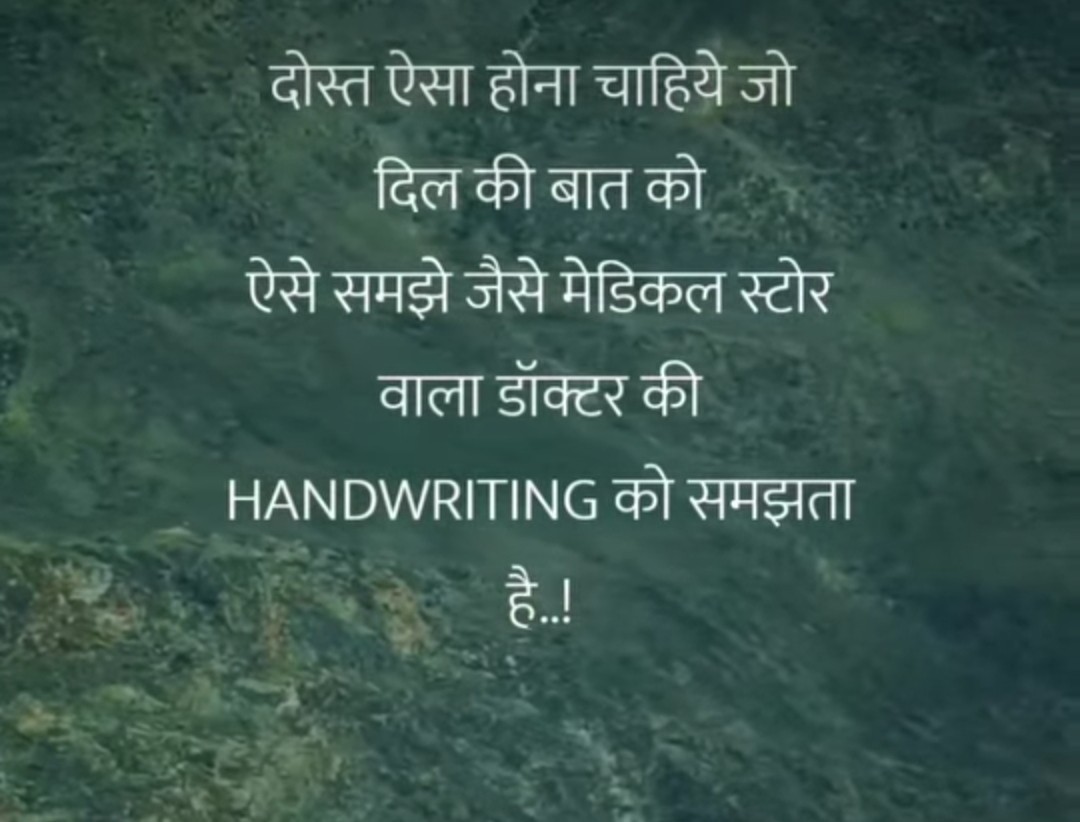 दोस्त ऐसा होना चाहिये जो
दिल की बात को
ऐसे समझे जैसे मेडिकल स्टोर
वाला डॉक्टर की
HANDWRITING को समझता
है..!